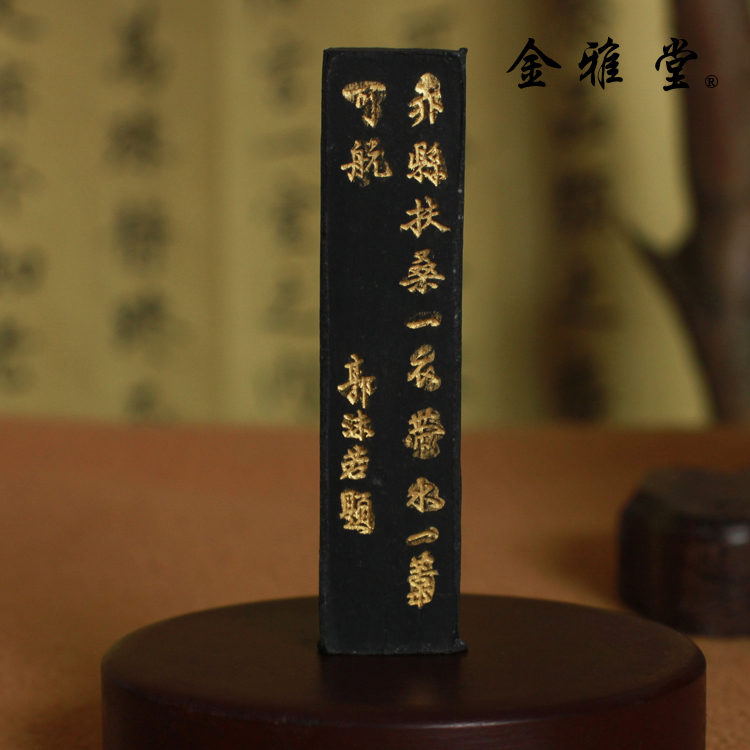 金雅堂®
赤縣扶桑一衣帶水一葦
可航
郭沫若題